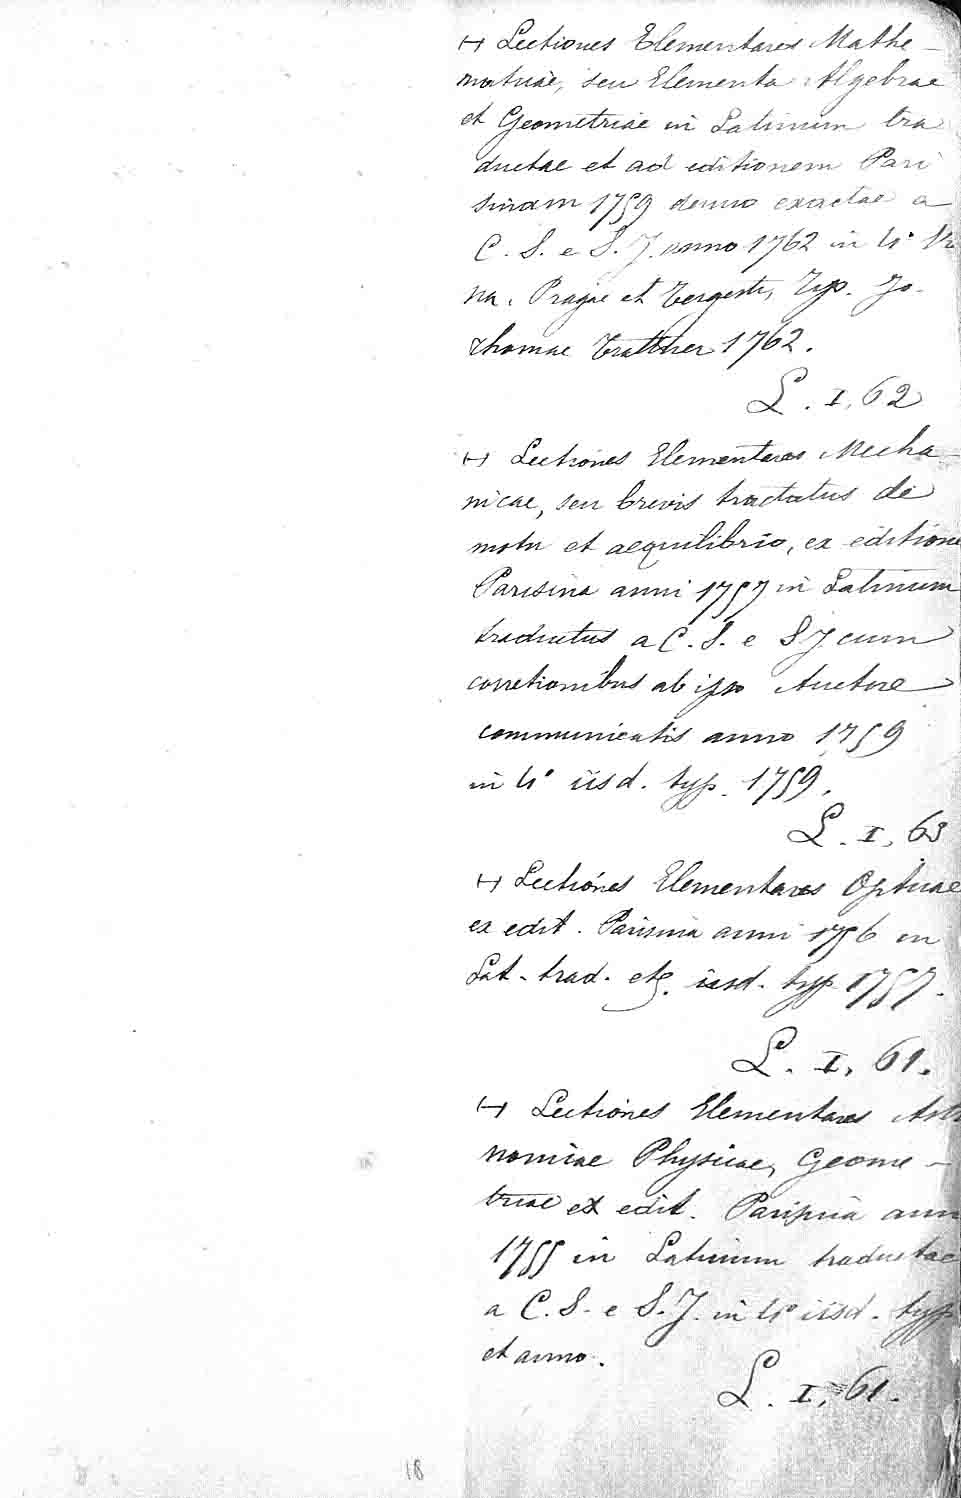 H Lectiones Elementares Mathe-
maticae, seu Elementa Algebrae
et Geometriae in Latinum tra
ductae et ad editionem Pari
sinam 1759 denuo exactae a
C. S. e S. J. anno 1762 in 4°
na. Pragae et Tergesti, Typ. Jo.
Thomae Trattner 1762.
L. I, 62
H Lectiones Elementares Mecha-
nicae, seu brevis tractatus de
motu et aequilibrio, ex editione
Parisina anni 1757 in Latinum
traductus a C. S. e S J cum
corretionibus ab ipso Auctore
communicatis anno 1759
in 4° iisd. typ. 1759.
L. I, 63
H Lectiones Elementares Opticae
ex edit. Parisina anni 1756 in
Lat. trad. etc. iisd. typ. 1757.
L. I, 61.
H Lectiones Elementares Astro
nomiae Physicae, Geome-
tricae ex edit. Parisina anni
1755 in Latinum traductae
a C. S. e S. J. in 4° iisd. typ
et anno.
L. I, 61.
18